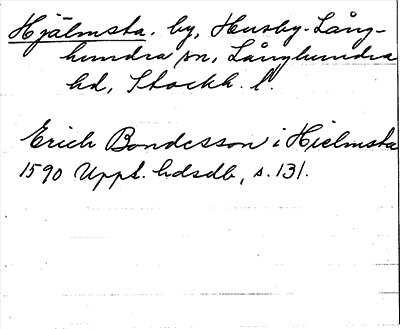 Hjälmsta. by, Husby-Lång-
hundra sn, Långhundra
hd, Stockh. l.
Erich Bondesson i Hielmsta
1590 Uppl. hdsdb, s. 131.